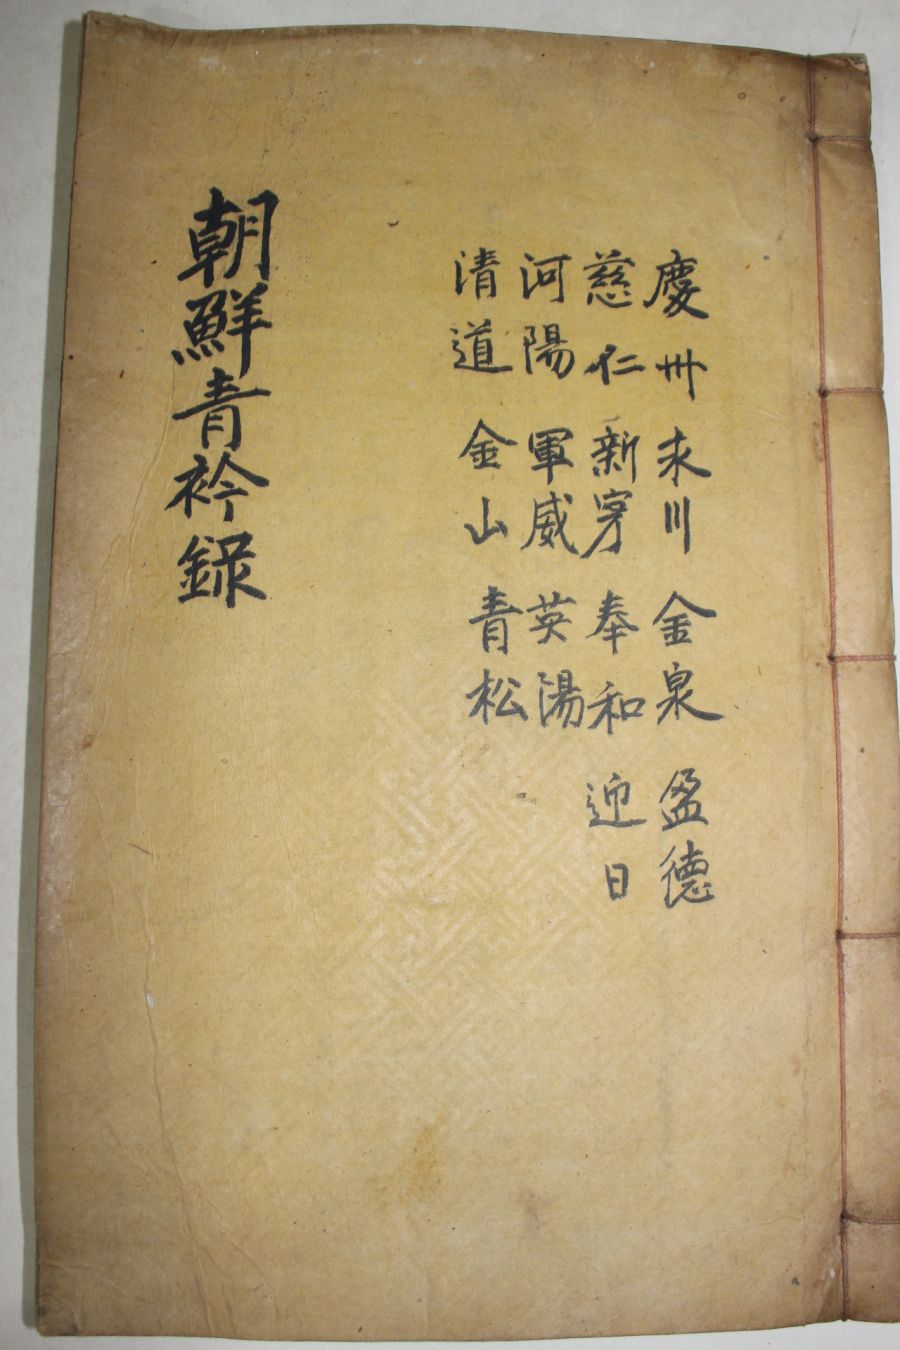 慶州 永川 金泉 盈德
慈仁 新寧 奉和 迎日
河陽 軍威 英陽
清道 金山 青松
朝鮮青衿錄